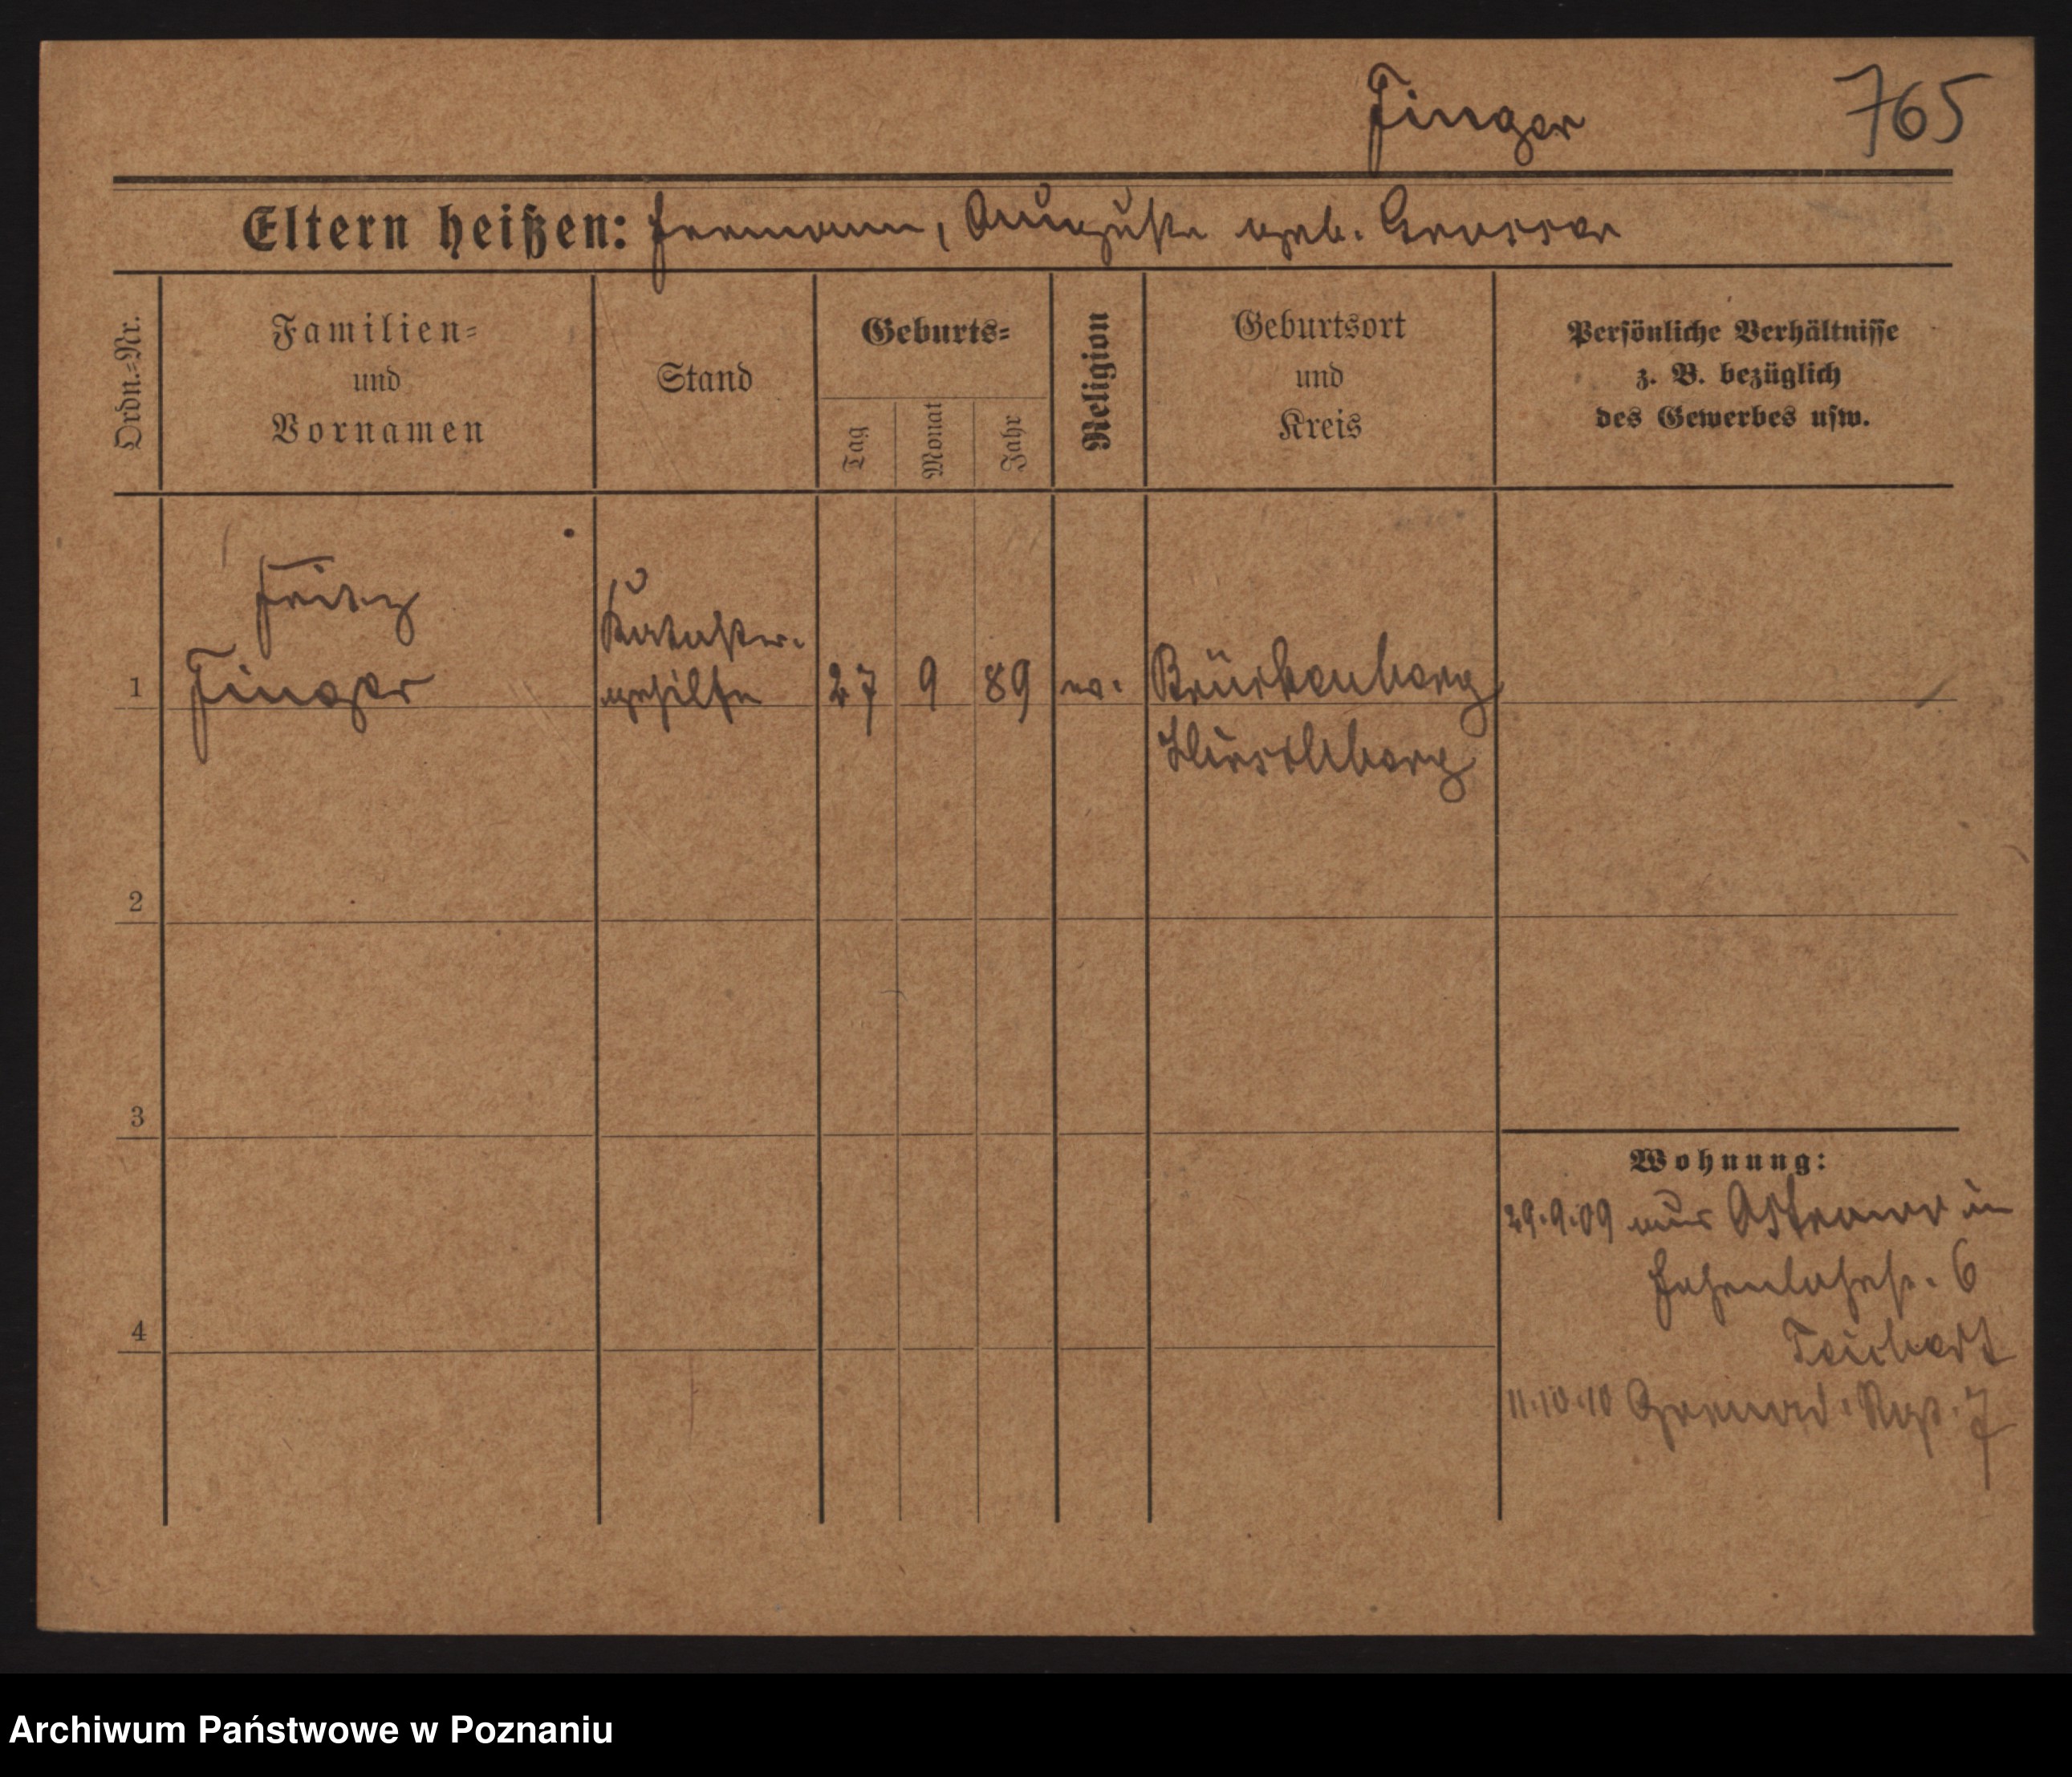 Finger 765
Eltern heißen: Hermann, Auguste geb. Grosser
Ordn.-Nr.
Familien-
und
Vornamen
Stand
Geburts-
Tag
Monat
Jahr
Religion
Geburtsort
und
Kreis
Persönliche Verhältnisse
z. B. bezüglich
des Gewerbes usw.
Fritz
Finger
Kataster-
gehilfe
1 27 9 89 ev. Brückenberg
Hirschberg
2
3
4
Wohnung:
29.9.09 aus Ostrowo in
6
Teichert
11.10.10 Grenad. Rgt. 7
Archiwum Państwowe w Poznaniu